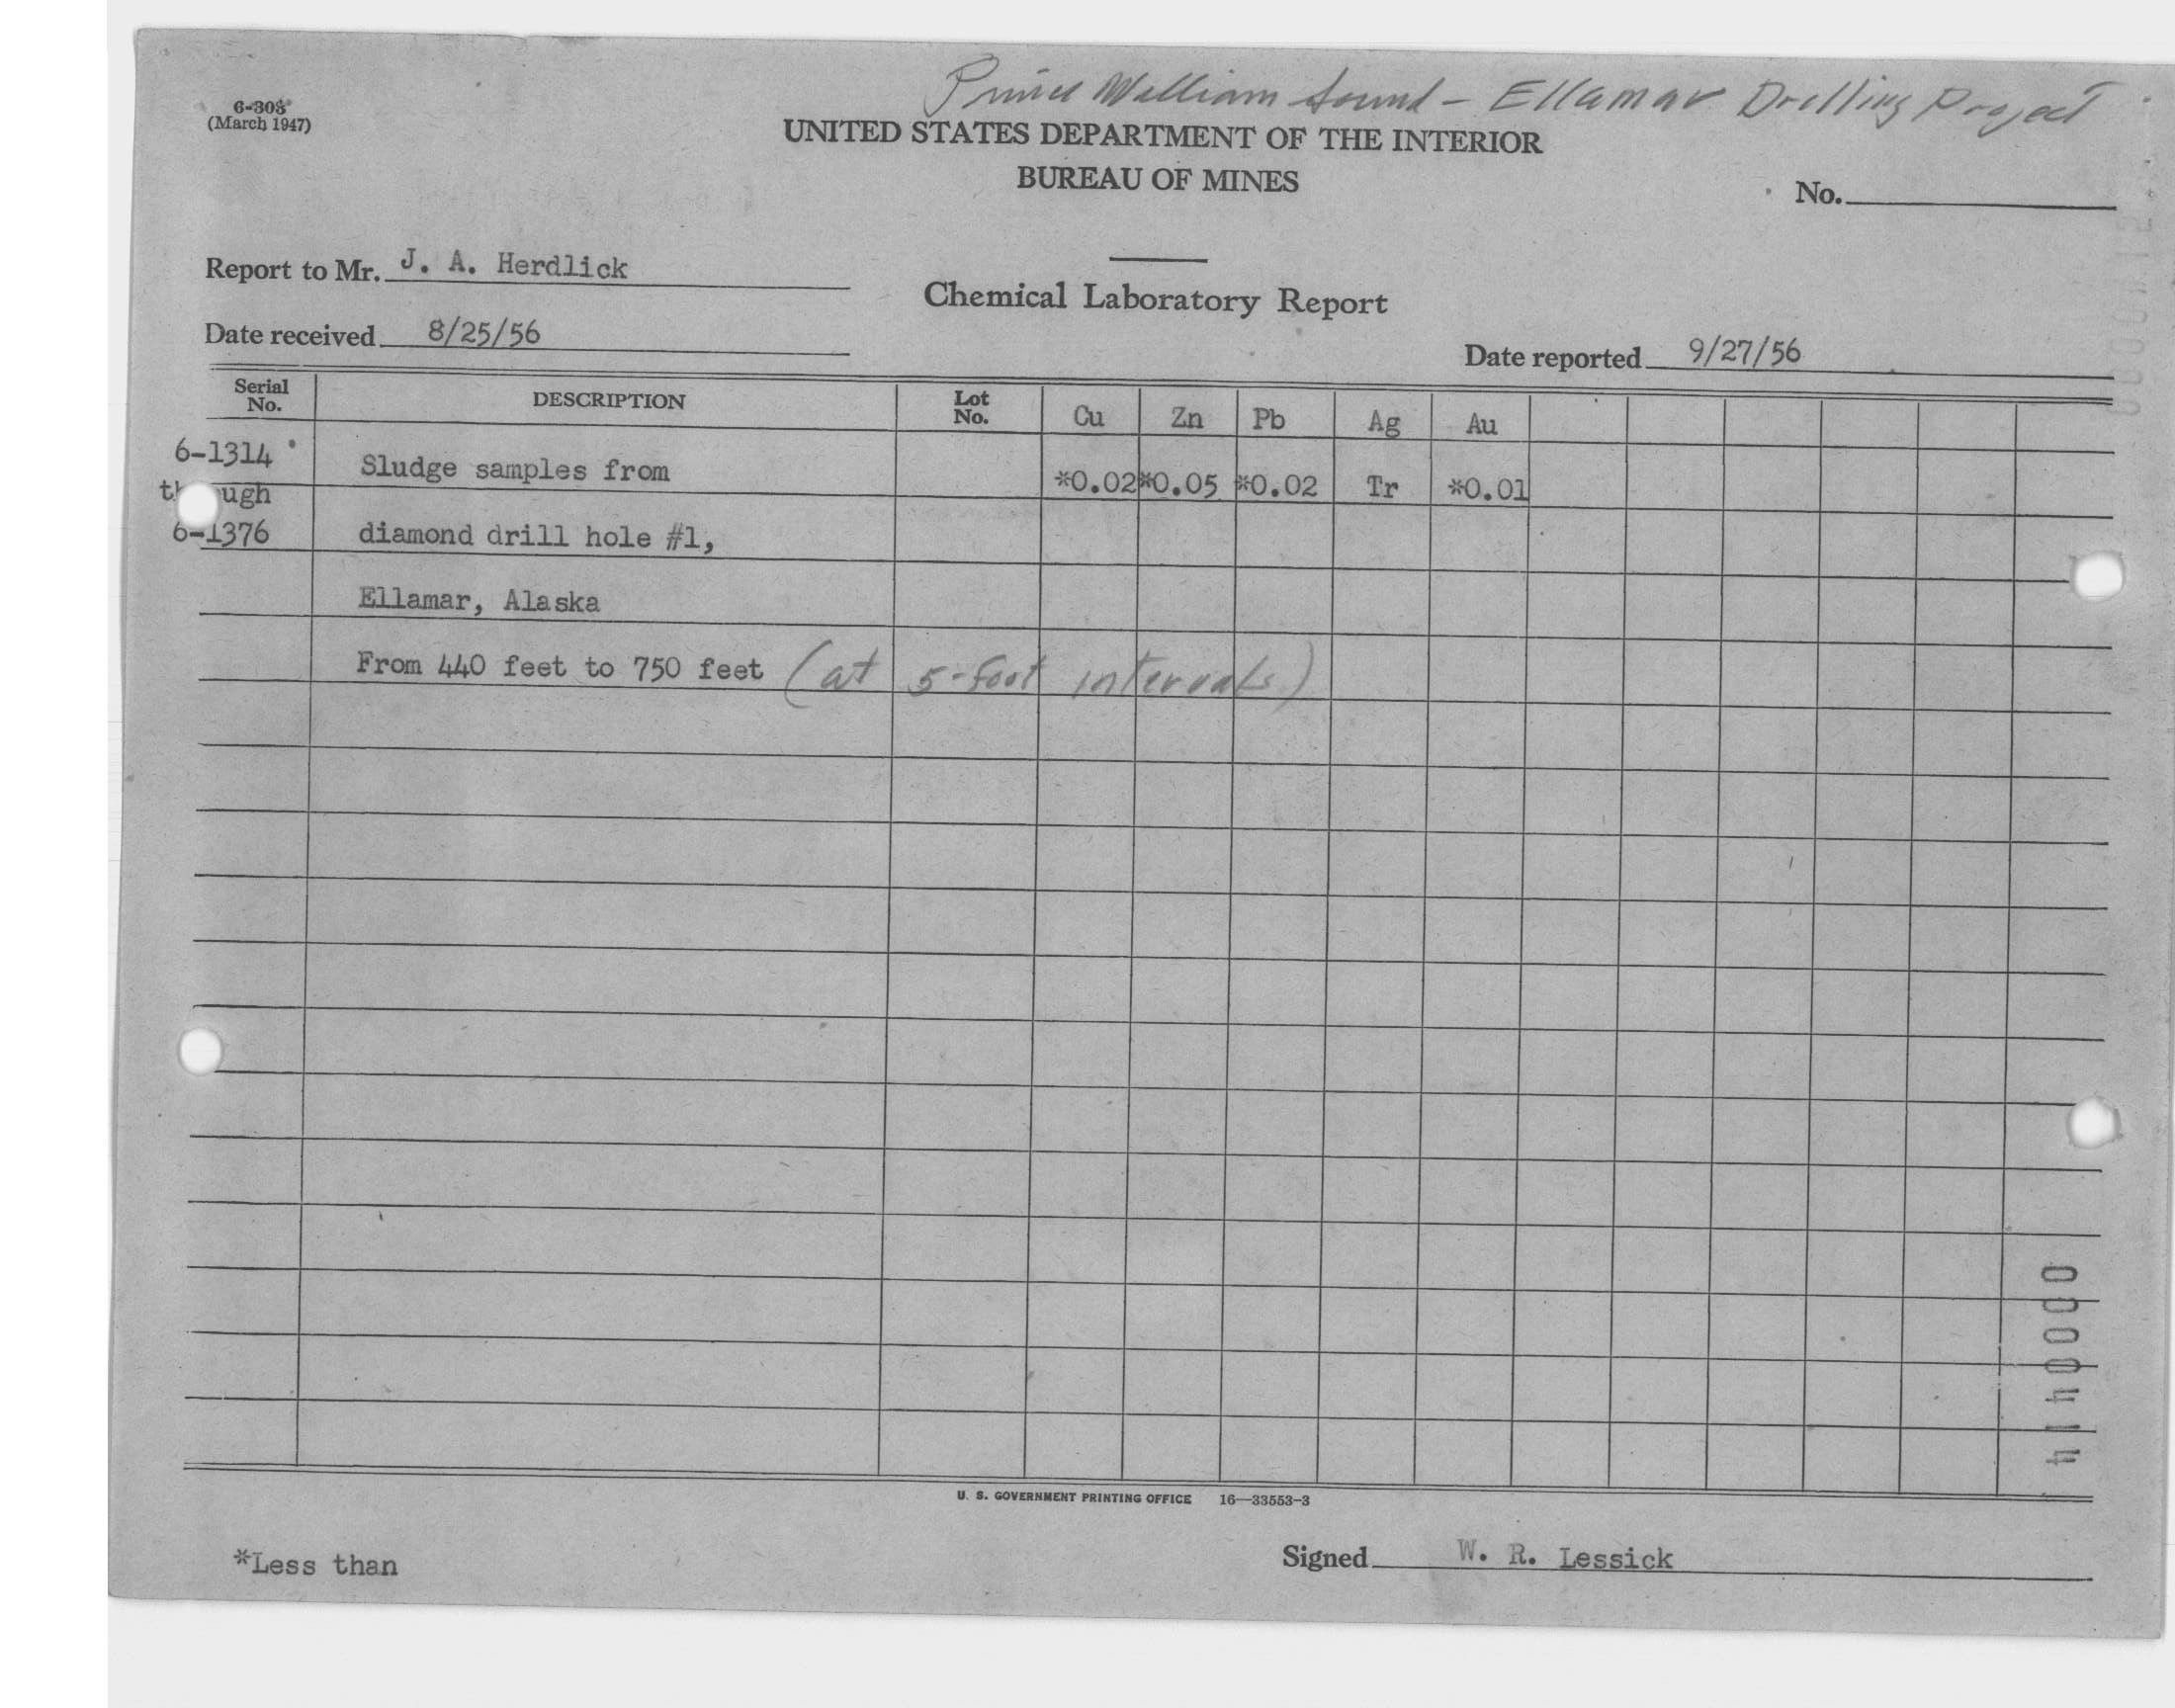 Prince William Sound - Ellamar Drilling Project
6-303
(March 1947)
UNITED STATES DEPARTMENT OF THE INTERIOR
BUREAU OF MINES
No.
Report to Mr. J. A. Herdlick
Chemical Laboratory Report
Date received 8/25/56
Date reported 9/27/56
Serial No. DESCRIPTION Lot No. Cu Zn Pb Ag Au
6-1314 Sludge samples from *0.02 *0.05 *0.02 Tr *0.01
through
6-1376 diamond drill hole #1,
Ellamar, Alaska
From 440 feet to 750 feet (at 5-foot intervals)
0000414
U. S. GOVERNMENT PRINTING OFFICE 16—33553-3
*Less than
Signed W. R. Lessick